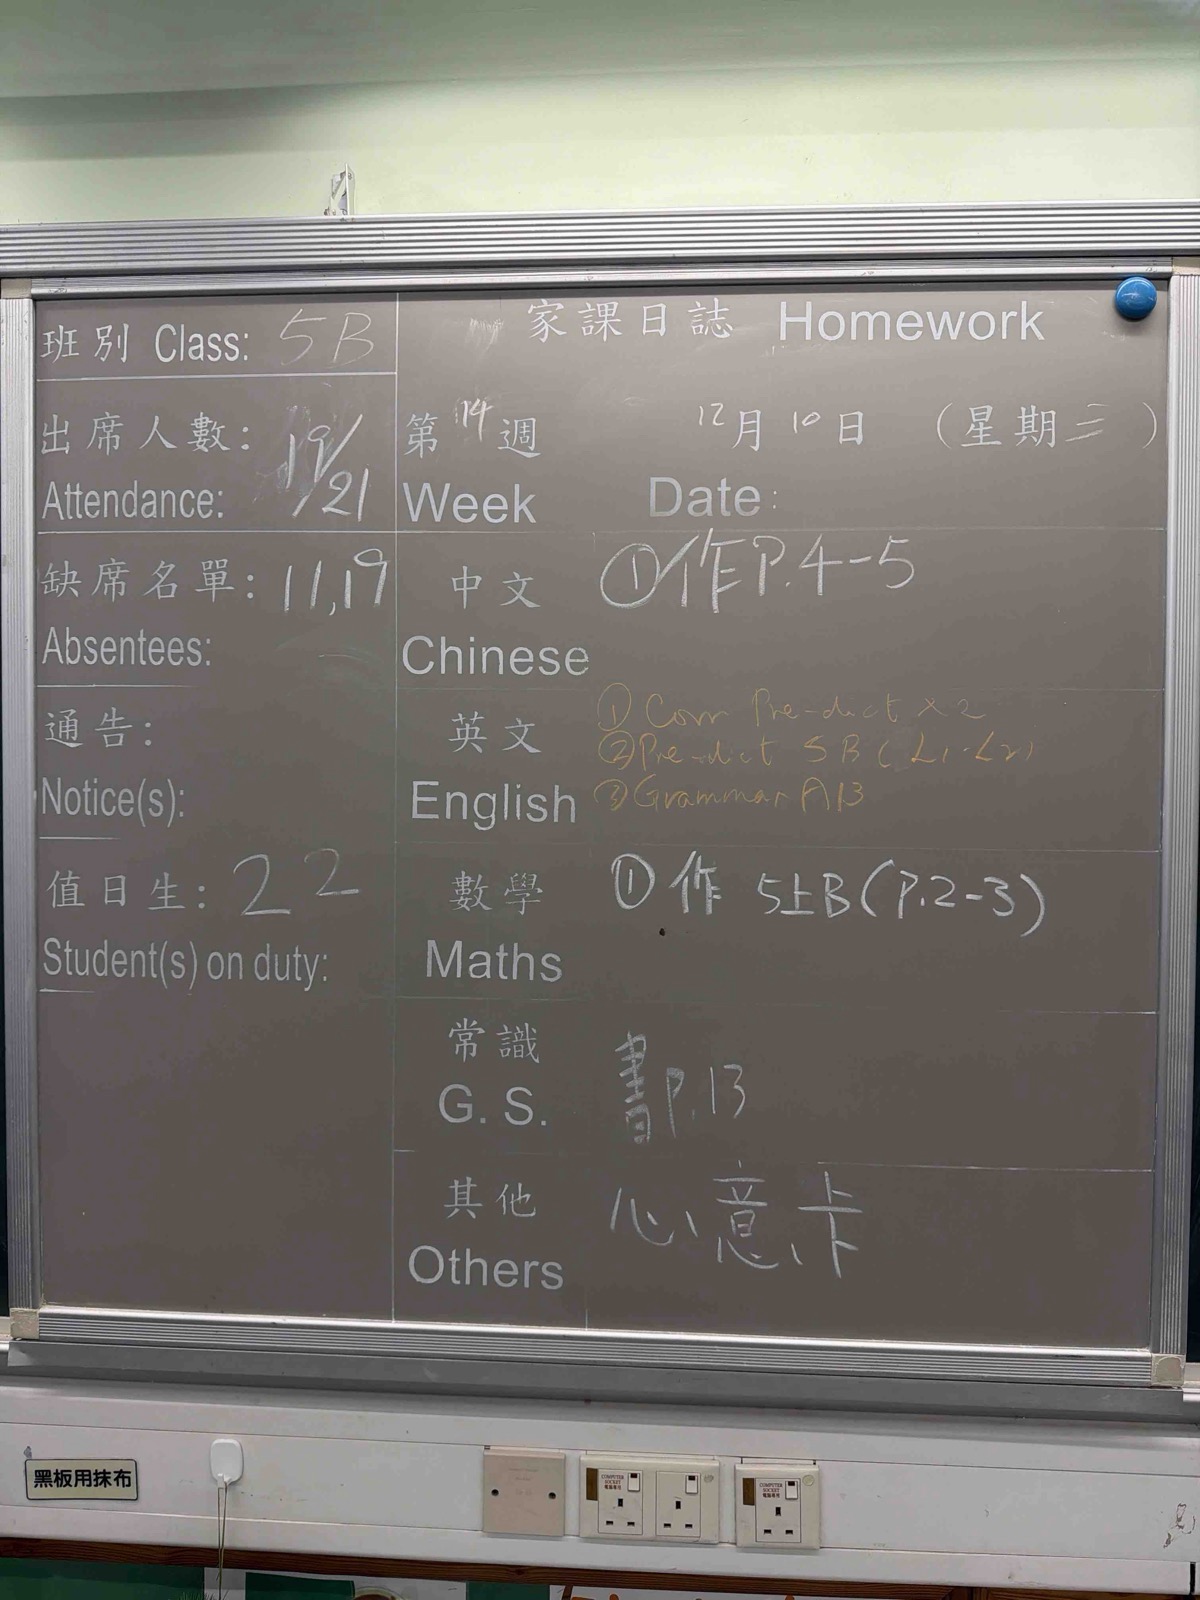 班別 Class: 5B
出席人數: 19/21
Attendance:
缺席名單: 11,19
Absentees:
通告:
Notice(s):
值日生: 22
Student(s) on duty:
家課日誌 Homework
第14週 12月10日 (星期三)
Week Date:
中文 ①作P.4-5
Chinese
英文 ① Corr Pre-dict x2
② Pre-dict 5B (L1-L2)
English ③ Grammar AB
數學 ① 作 5上B (P.2-3)
Maths
常識
G. S. 書P.13
其他 心意卡
Others
黑板用抹布
COMPUTER SOCKET
電腦專用
COMPUTER SOCKET
電腦專用